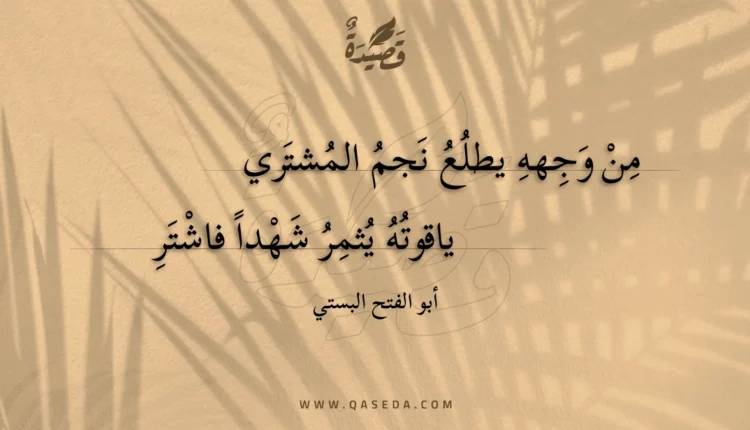 قَصِيْدَةٌ
مِنْ وَجِههِ يطلُعُ نَجمُ المُشتَري
ياقوتُهُ يُثمِرُ شَهْداً فاشْتَرِ
أبو الفتح البستي
WWW.QASEDA.COM